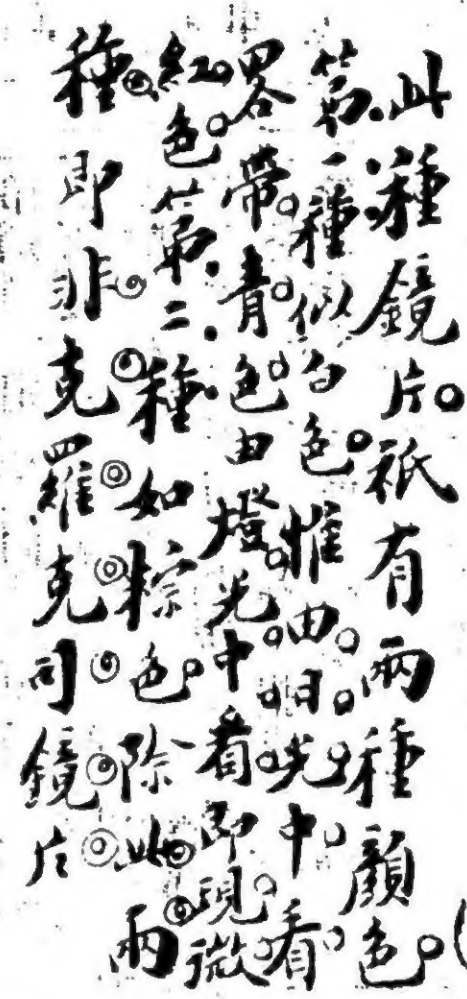 此種鏡片祇有兩種顏色
第一種似白色惟由日光中看
畧帶青色由燈光中看即現微
紅色第二種如粽色除此兩
種即非克羅克司鏡片